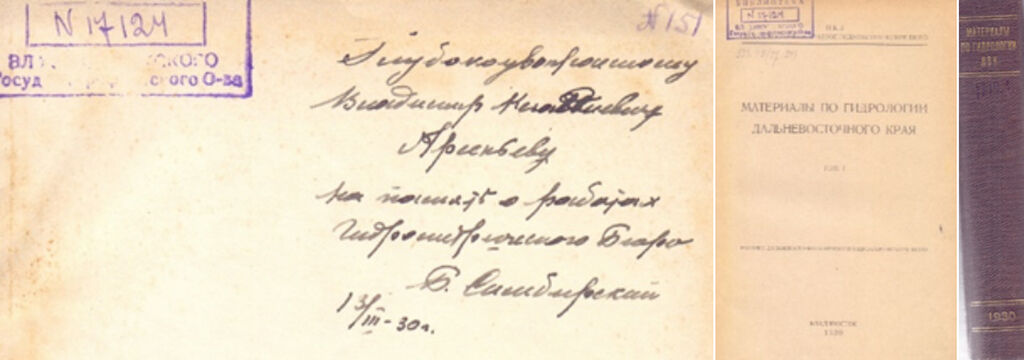 N 17124
ВЛ КОГО
Госуд ского О-ва
№ 151
Глубокоуважаемому
Владимир Клавдиевич
Арсеньеву
на память о работах
Гидрометрического Бюро
Б. Самбирский
13/III-30 г.
N 17124
МАТЕРИАЛЫ ПО ГИДРОЛОГИИ
ДАЛЬНЕВОСТОЧНОГО КРАЯ
ВЛАДИВОСТОК
1930
МАТЕРИАЛЫ
ПО ГИДРОЛОГИИ
ДВК
1930